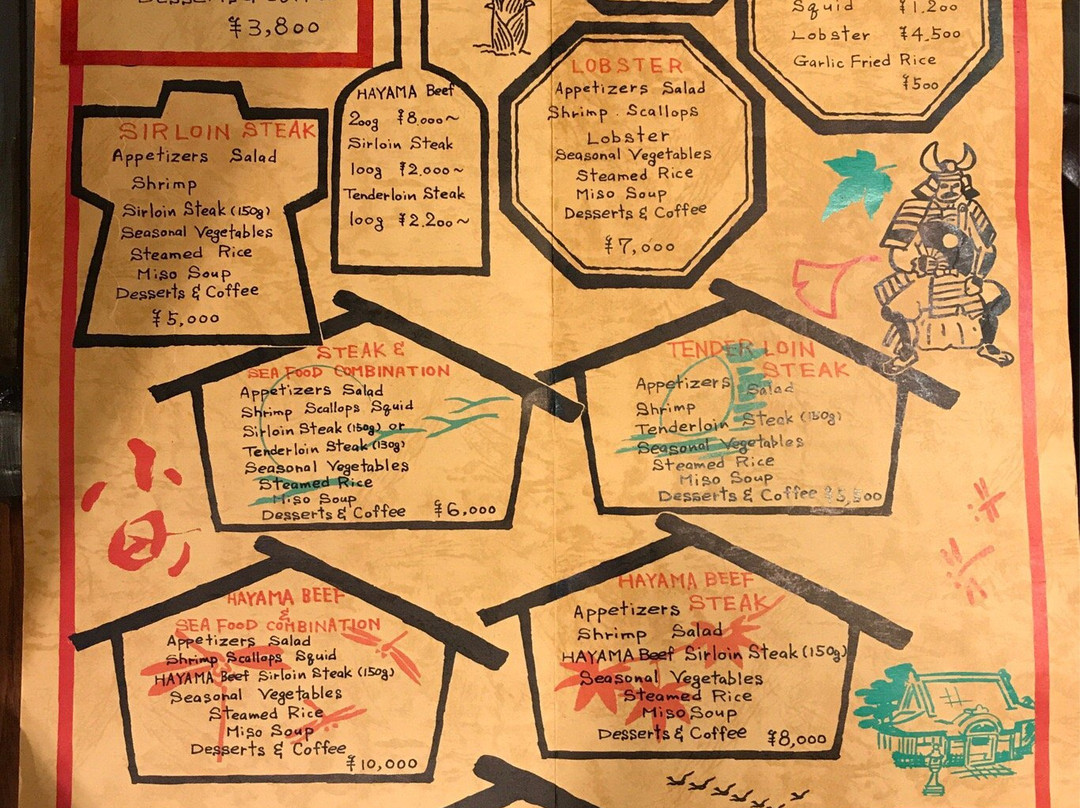 ¥3,800
Squid ¥1.200
Lobster ¥4.500
Garlic Fried Rice
¥500
SIRLOIN STEAK
Appetizers Salad
Shrimp
Sirloin Steak (150g)
Seasonal Vegetables
Steamed Rice
Miso Soup
Desserts & Coffee
¥5,000
HAYAMA Beef
200g ¥8,000~
Sirloin Steak
100g ¥2.000~
Tenderloin Steak
100g ¥2.200~
LOBSTER
Appetizers Salad
Shrimp . Scallops
Lobster
Seasonal Vegetables
Steamed Rice
Miso Soup
Desserts & Coffee
¥7,000
STEAK &
SEA FOOD COMBINATION
Appetizers Salad
Shrimp Scallops Squid
Sirloin Steak (150g) or
Tenderloin Steak (130g)
Seasonal Vegetables
Steamed Rice
Miso Soup
Desserts & Coffee ¥6,000
TENDER LOIN
STEAK
Appetizers Salad
Shrimp
Tenderloin Steak (130g)
Seasonal Vegetables
Steamed Rice
Miso Soup
Desserts & Coffee ¥5,500
HAYAMA BEEF
&
SEA FOOD COMBINATION
Appetizers Salad
Shrimp Scallops Squid
HAYAMA Beef Sirloin Steak (150g)
Seasonal Vegetables
Steamed Rice
Miso Soup
Desserts & Coffee
¥10,000
HAYAMA BEEF
STEAK
Appetizers
Shrimp Salad
HAYAMA Beef Sirloin Steak (150g)
Seasonal Vegetables
Steamed Rice
Miso Soup
Desserts & Coffee ¥8,000